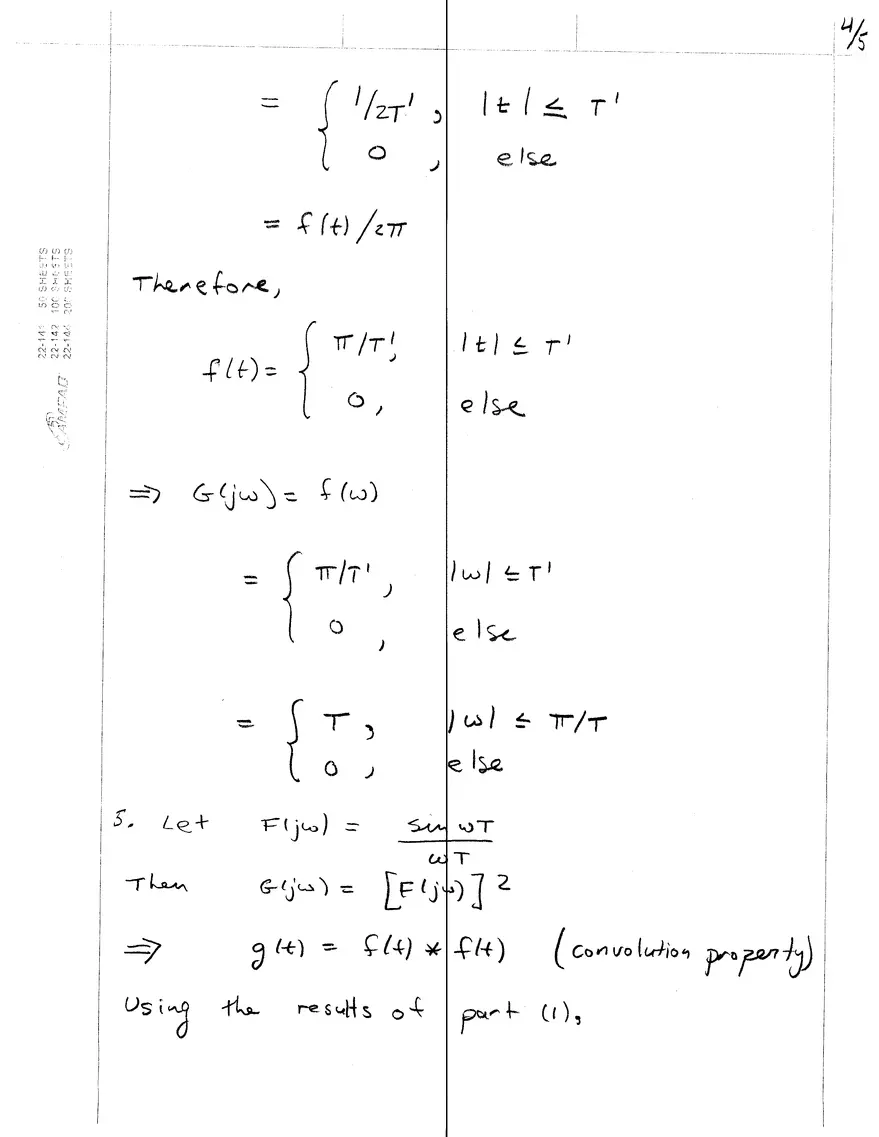 4/5
= { 1/2T' , |t| ≤ T'
0 , else
= f(t)/2π
Therefore,
f(t) = { π/T', |t| ≤ T'
0, else
⇒ G(jω) = f(ω)
= { π/T' , |ω| ≤ T'
0 , else
= { T , |ω| ≤ π/T
0 , else
5. Let F(jω) = sin ωT / ωT
Then G(jω) = [F(jω)]²
⇒ g(t) = f(t) * f(t) (convolution property)
Using the results of part (1),
22-141 50 SHEETS
22-142 100 SHEETS
22-144 200 SHEETS
CAMPAD